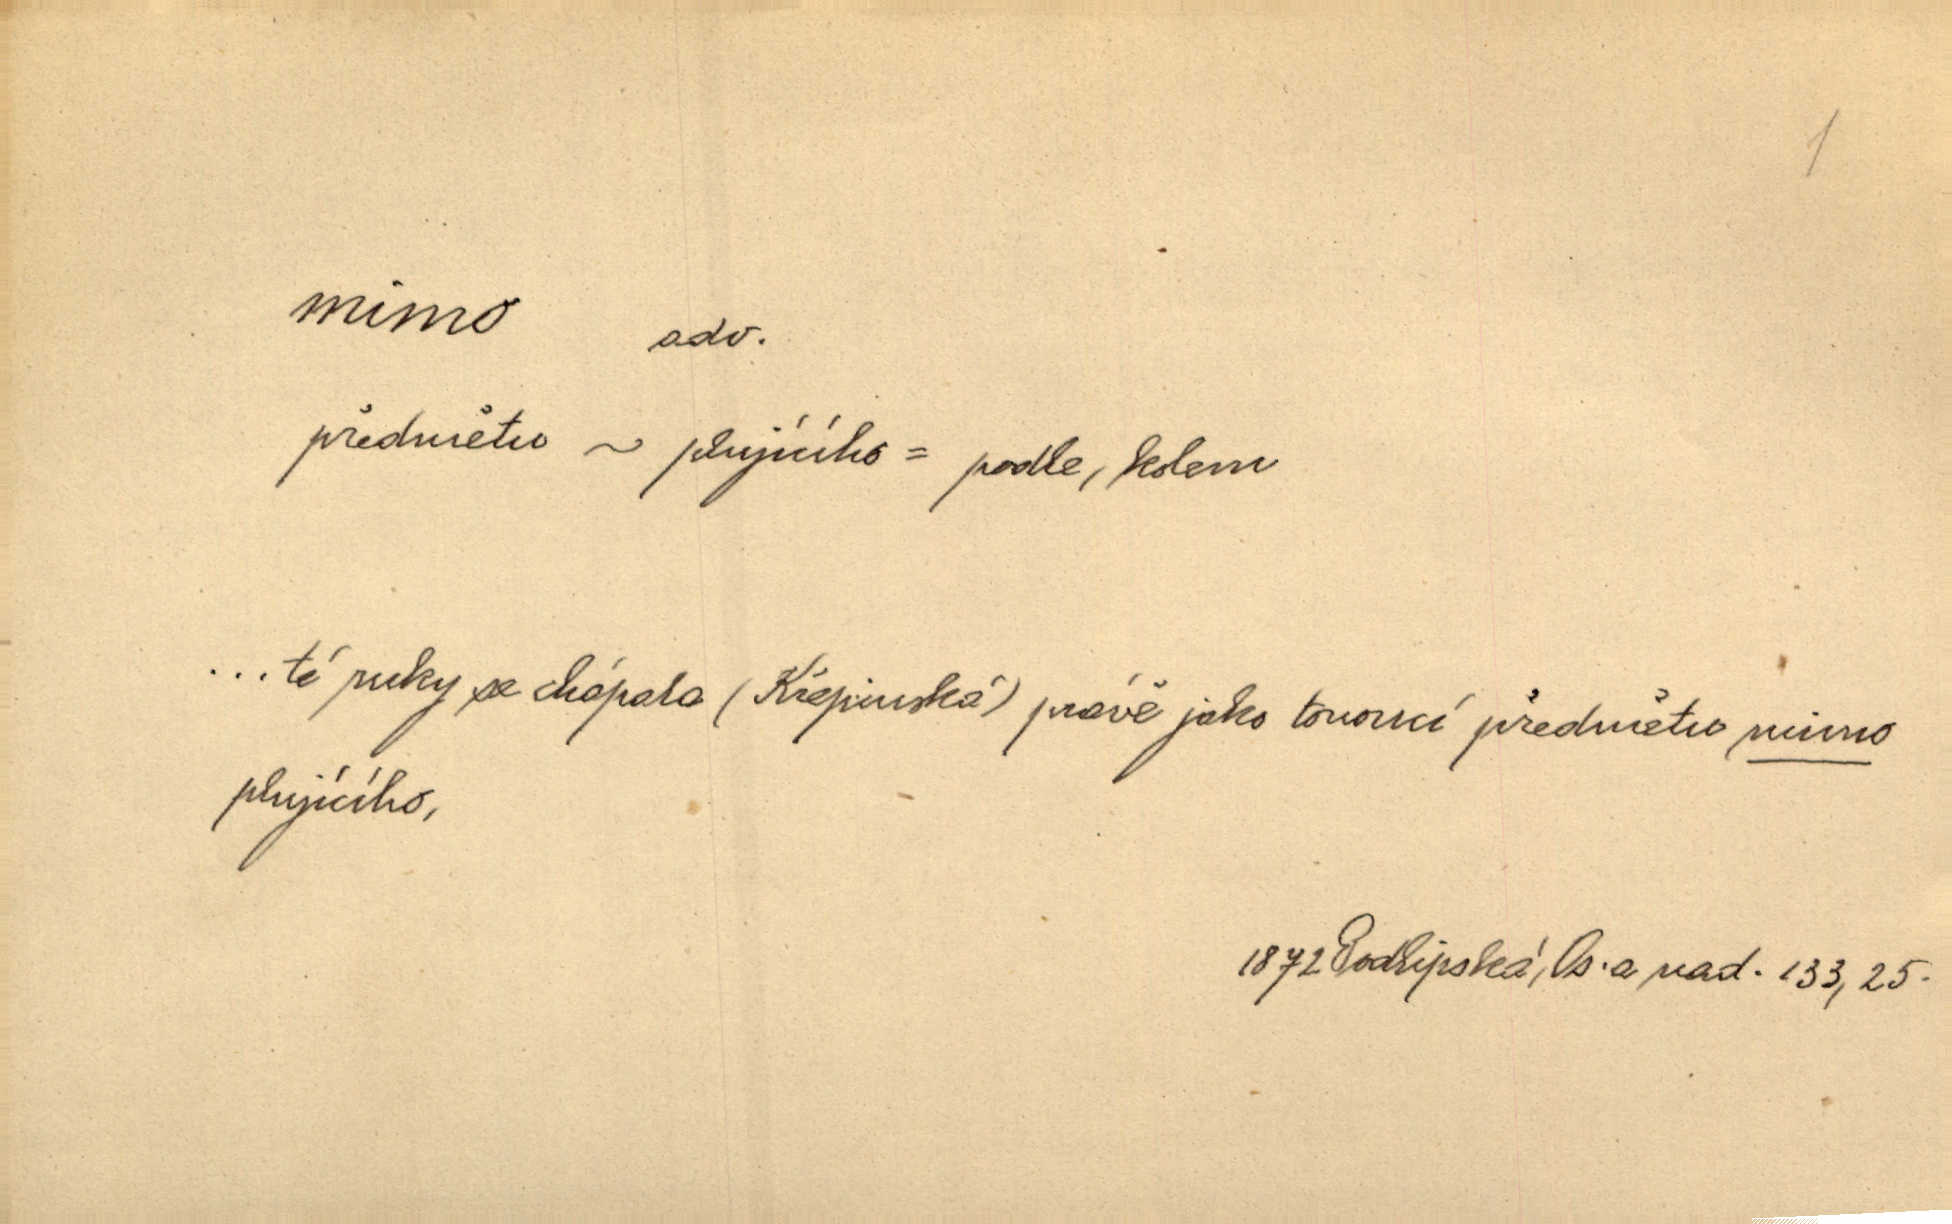 1
mimo adv.
předmětu ~ plujícího = podle, kolem
... té ruky se chápala (Křepinská) právě jako tonoucí předmětu mimo
plujícího,
1872 Podlipská, Os. a nad. 133, 25.